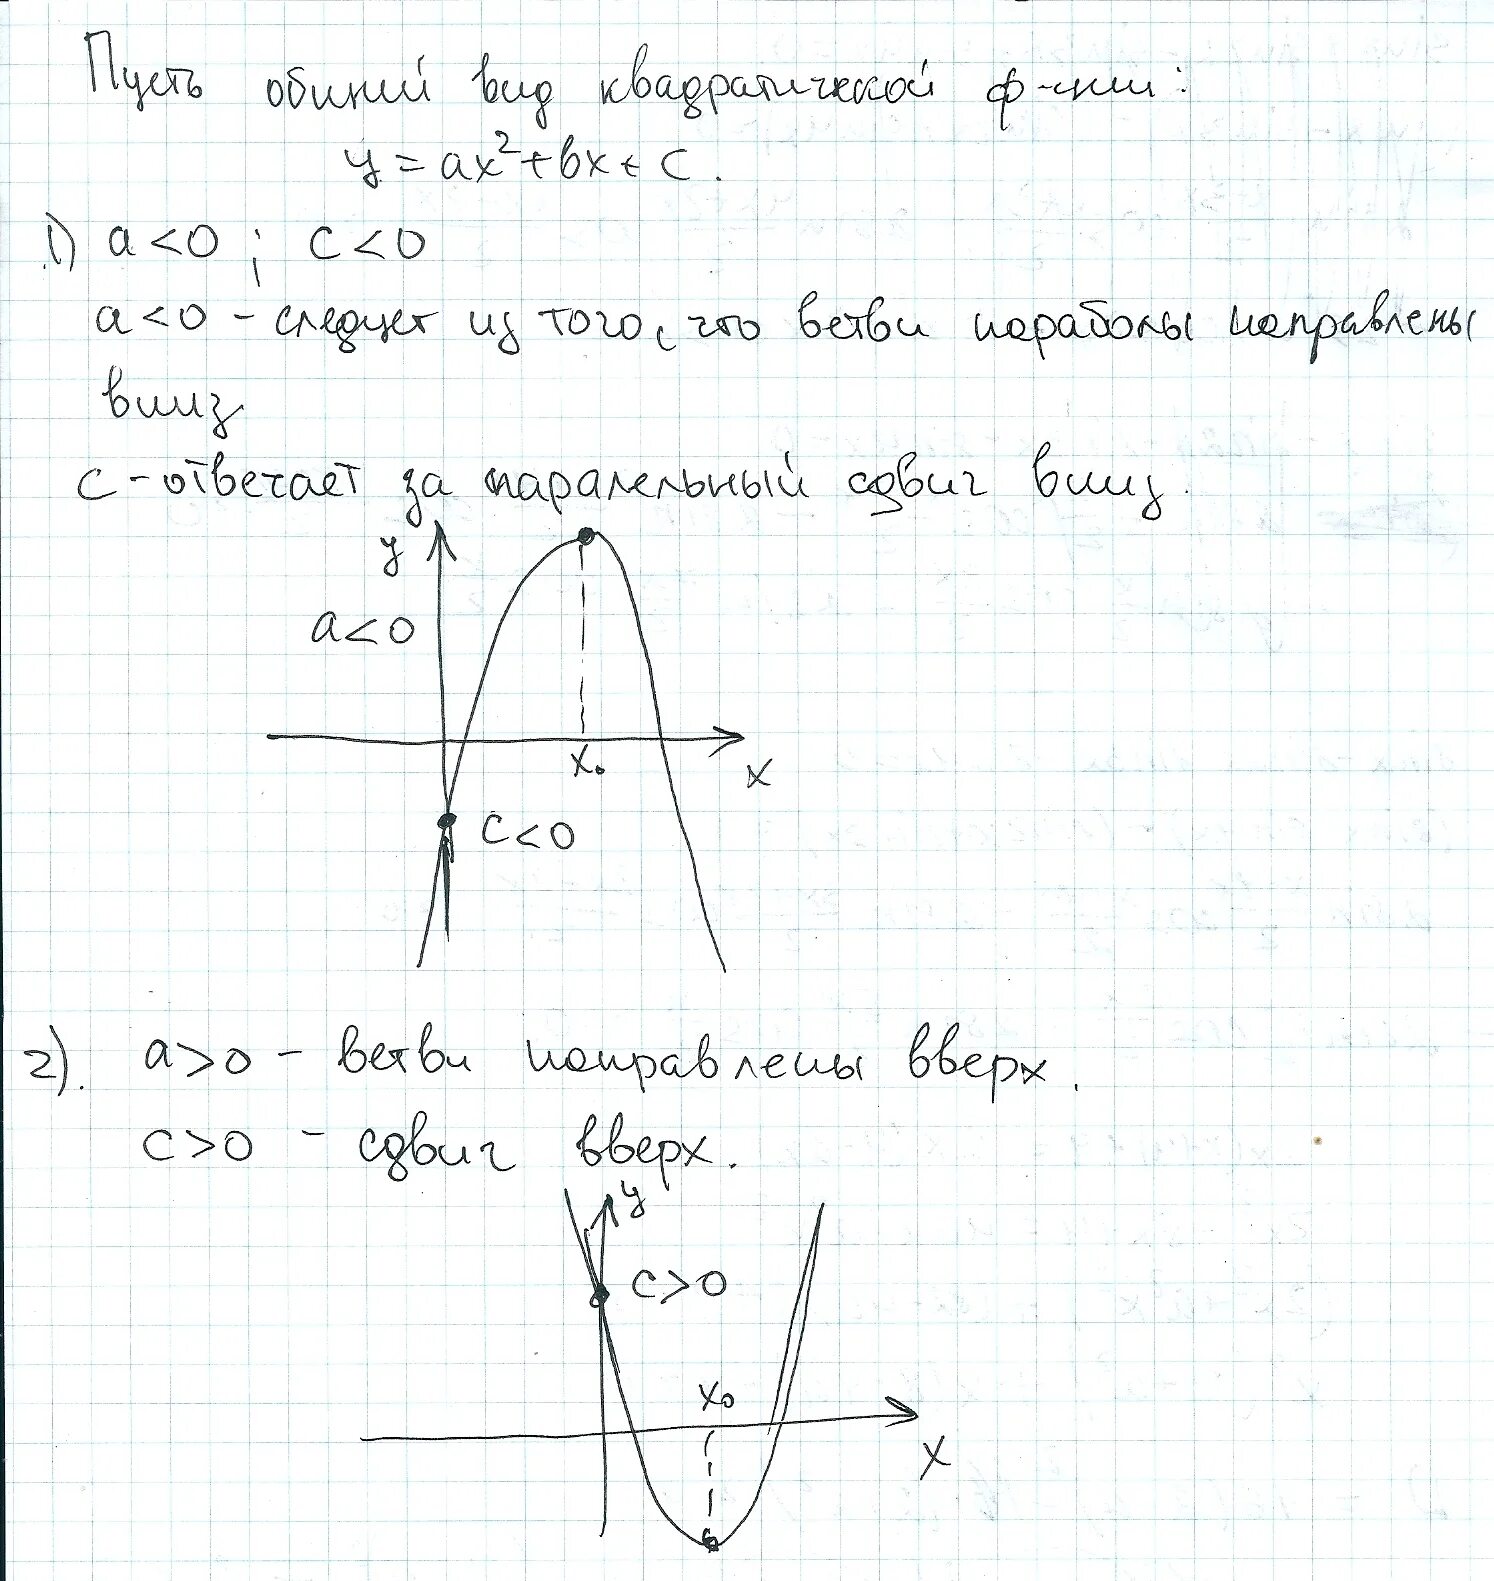 Пусть общий вид квадратической ф-ции:
y = ax² + bx + c.
1) a < 0 ; c < 0
a < 0 – следует из того, что ветви параболы направлены
вниз
c – отвечает за паралельный сдвиг вниз.
y
a < 0
x₀
x
c < 0
2). a > 0 – ветви направлены вверх.
c > 0 – сдвиг вверх.
y
c > 0
x₀
x